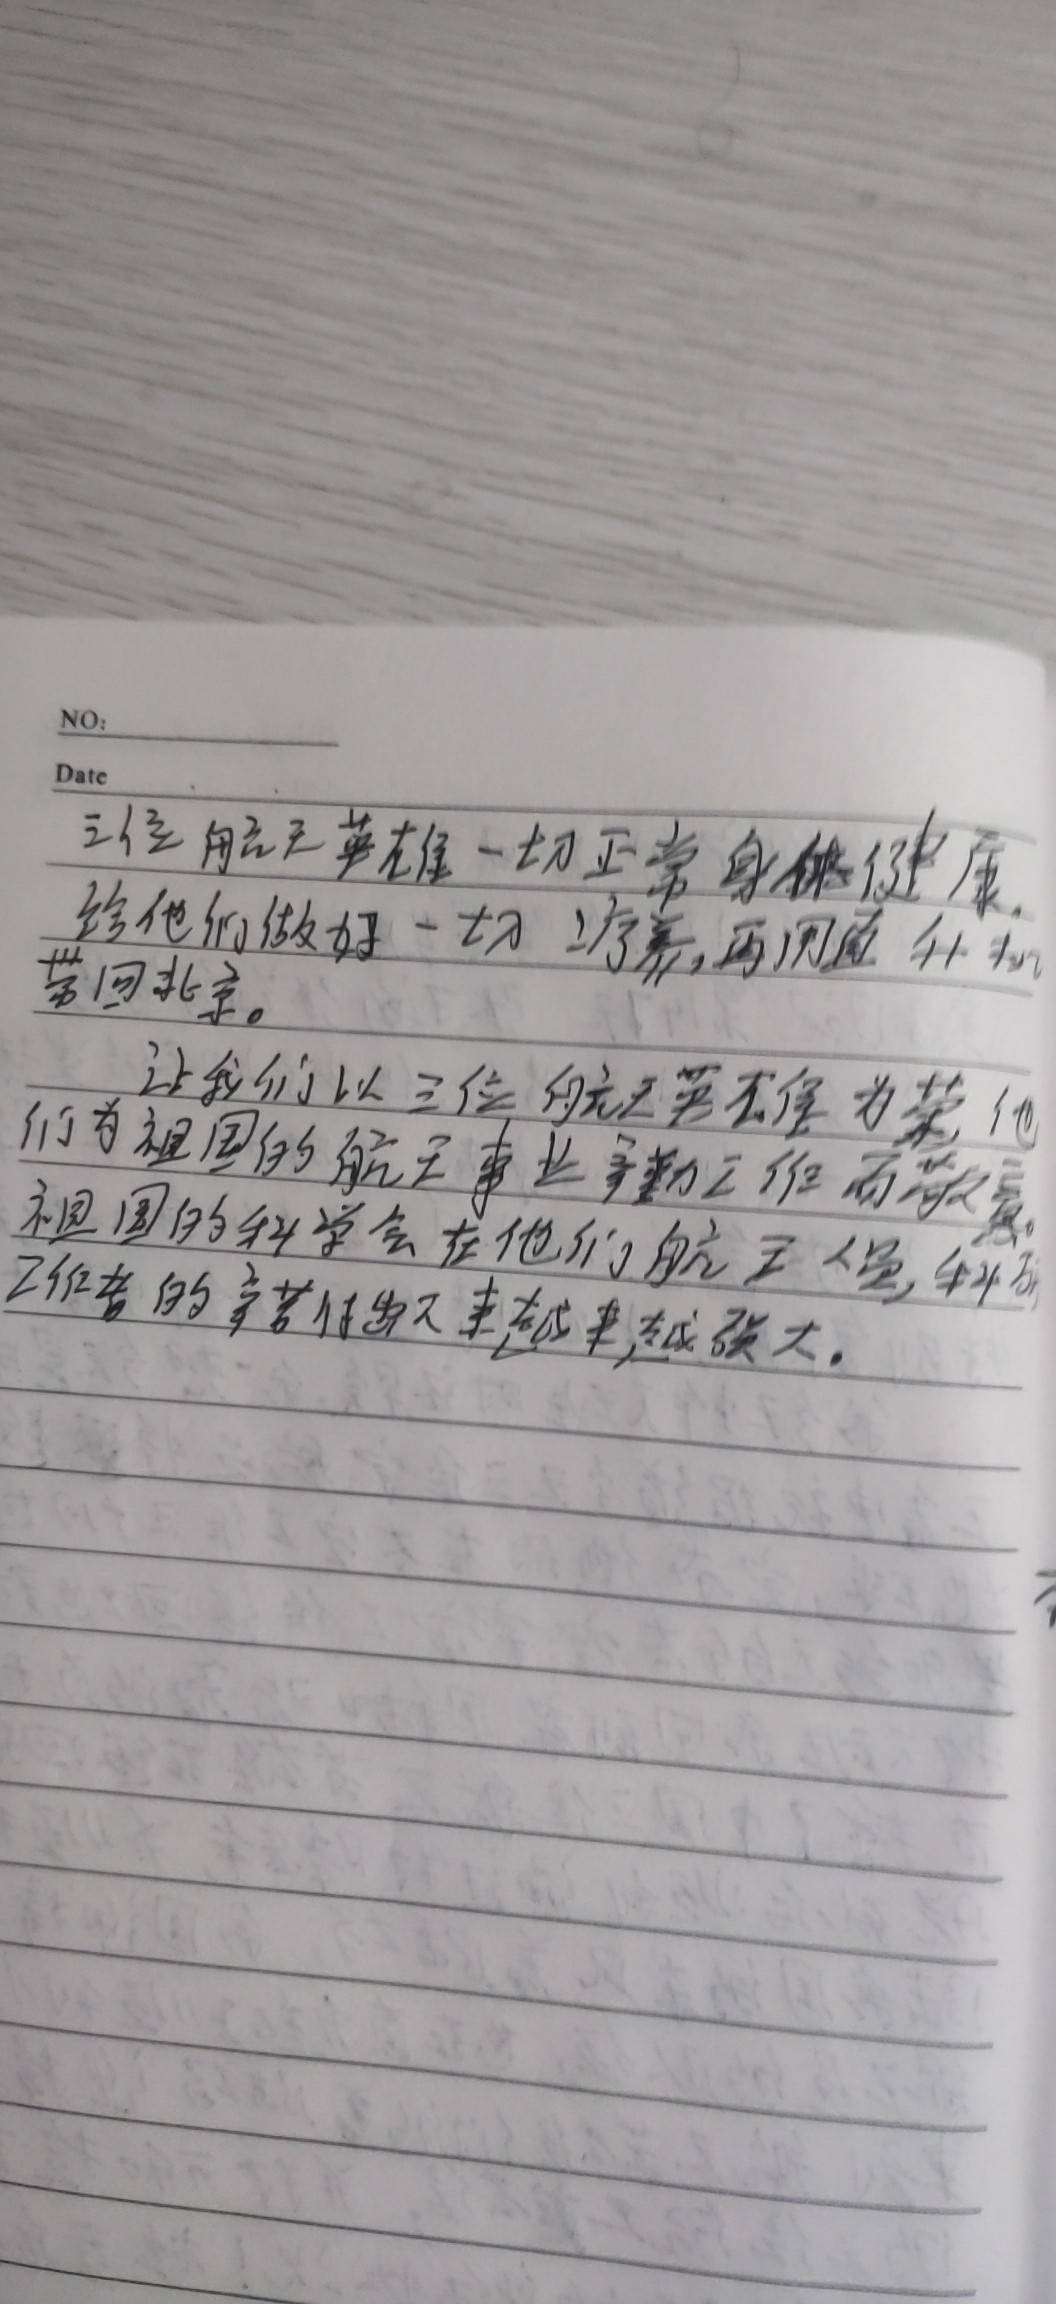 NO:
Date
三位航天英雄一切正常身体健康.
给他们做好一切疗养,再用直升机
带回北京。
让我们以三位航天英雄为荣,他
们为祖国的航天事业辛勤工作而敬意。
祖国的科学会在他们航天人员,科研
工作者的辛苦付出下来越来越强大.